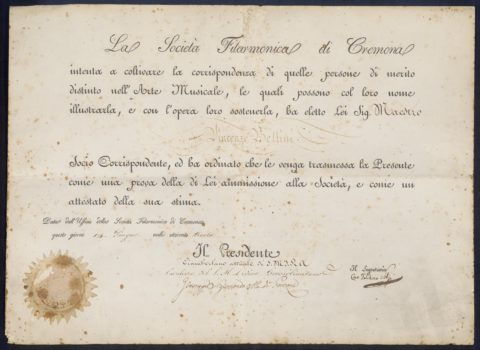 La Società Filarmonica di Cremona
intenta a coltivare la corrispondenza di quelle persone di merito
distinto nell'Arte Musicale, le quali possono col loro nome
illustrarla, e con l'opera loro sostenerla, ha eletto Lei Sig. Maestro
Vincenzo Bellini
Socio Corrispondente, ed ha ordinato che le venga trasmessa la Presente
come una prova della di Lei ammissione alla Società, e come un
attestato della sua stima.
Dato dall'Ufficio della Società Filarmonica di Cremona
questo giorno Giugno
Il Presidente
Ciambellano attuale di S.M.I.R.A.
Il Segretario